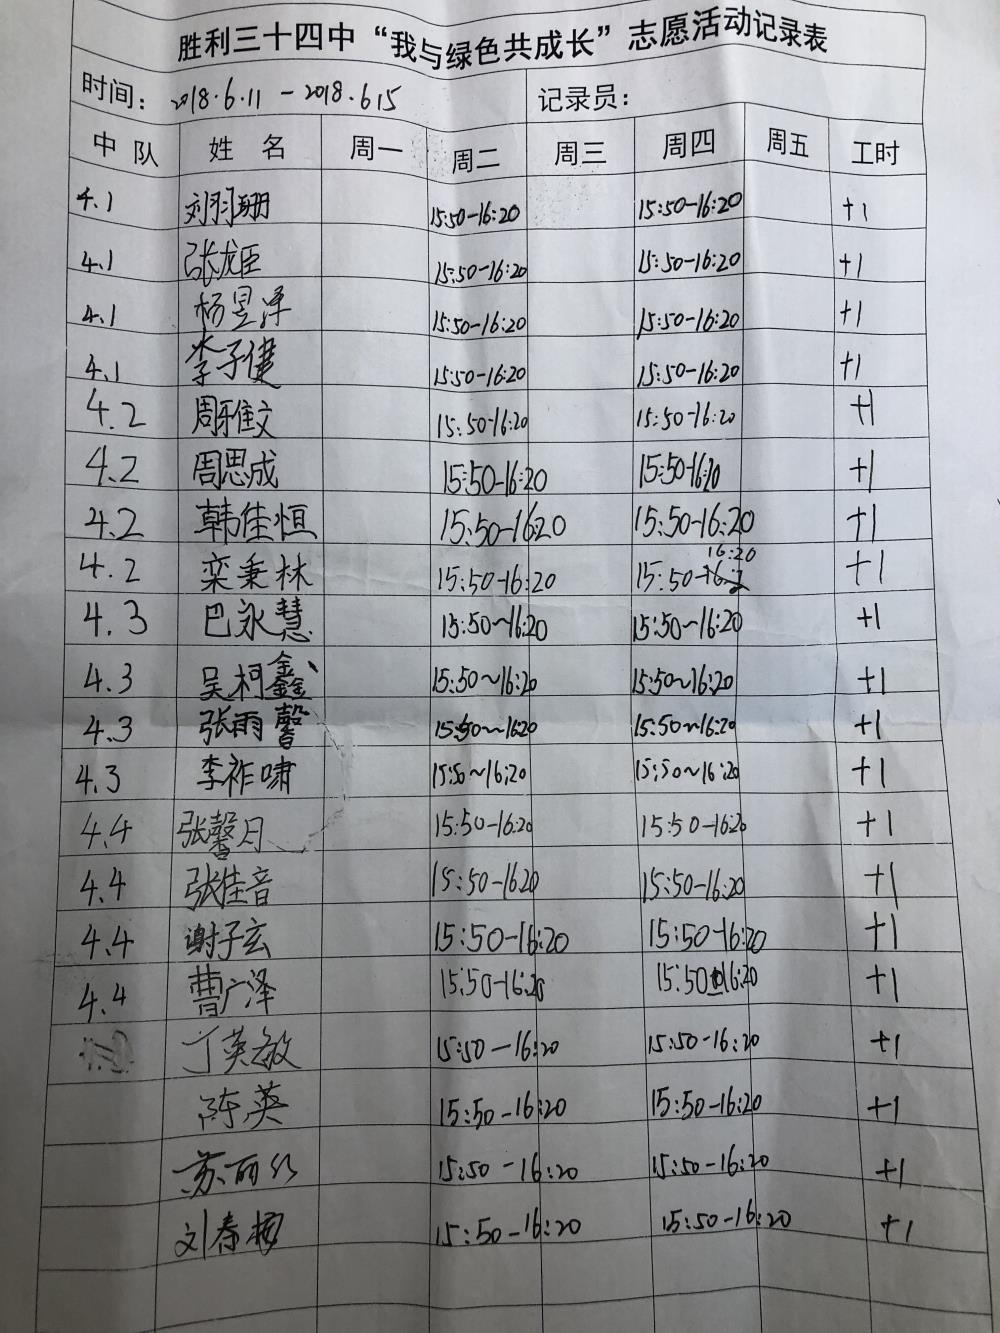 胜利三十四中“我与绿色共成长”志愿活动记录表
时间：2018.6.11 - 2018.6.15 记录员：
中队 姓名 周一 周二 周三 周四 周五 工时
4.1 刘羽珊 15:50-16:20 15:50-16:20 +1
4.1 张龙臣 15:50-16:20 15:50-16:20 +1
4.1 杨昱泽 15:50-16:20 15:50-16:20 +1
4.1 李子健 15:50-16:20 15:50-16:20 +1
4.2 周雅文 15:50-16:20 15:50-16:20 +1
4.2 周思成 15:50-16:20 15:50-16:20 +1
4.2 韩佳恒 15:50-16:20 15:50-16:20 +1
4.2 栾秉林 15:50-16:20 15:50-16:20 +1
4.3 巴永慧 15:50~16:20 15:50~16:20 +1
4.3 吴柯鑫 15:50~16:20 15:50~16:20 +1
4.3 张雨馨 15:50~16:20 15:50~16:20 +1
4.3 李祚啸 15:50~16:20 15:50~16:20 +1
4.4 张馨月 15:50-16:20 15:50-16:20 +1
4.4 张佳音 15:50-16:20 15:50-16:20 +1
4.4 谢子玄 15:50-16:20 15:50-16:20 +1
4.4 曹广泽 15:50-16:20 15:50-16:20 +1
丁英敏 15:50-16:20 15:50-16:20 +1
陈英 15:50-16:20 15:50-16:20 +1
苏丽红 15:50-16:20 15:50-16:20 +1
刘春梅 15:50-16:20 15:50-16:20 +1